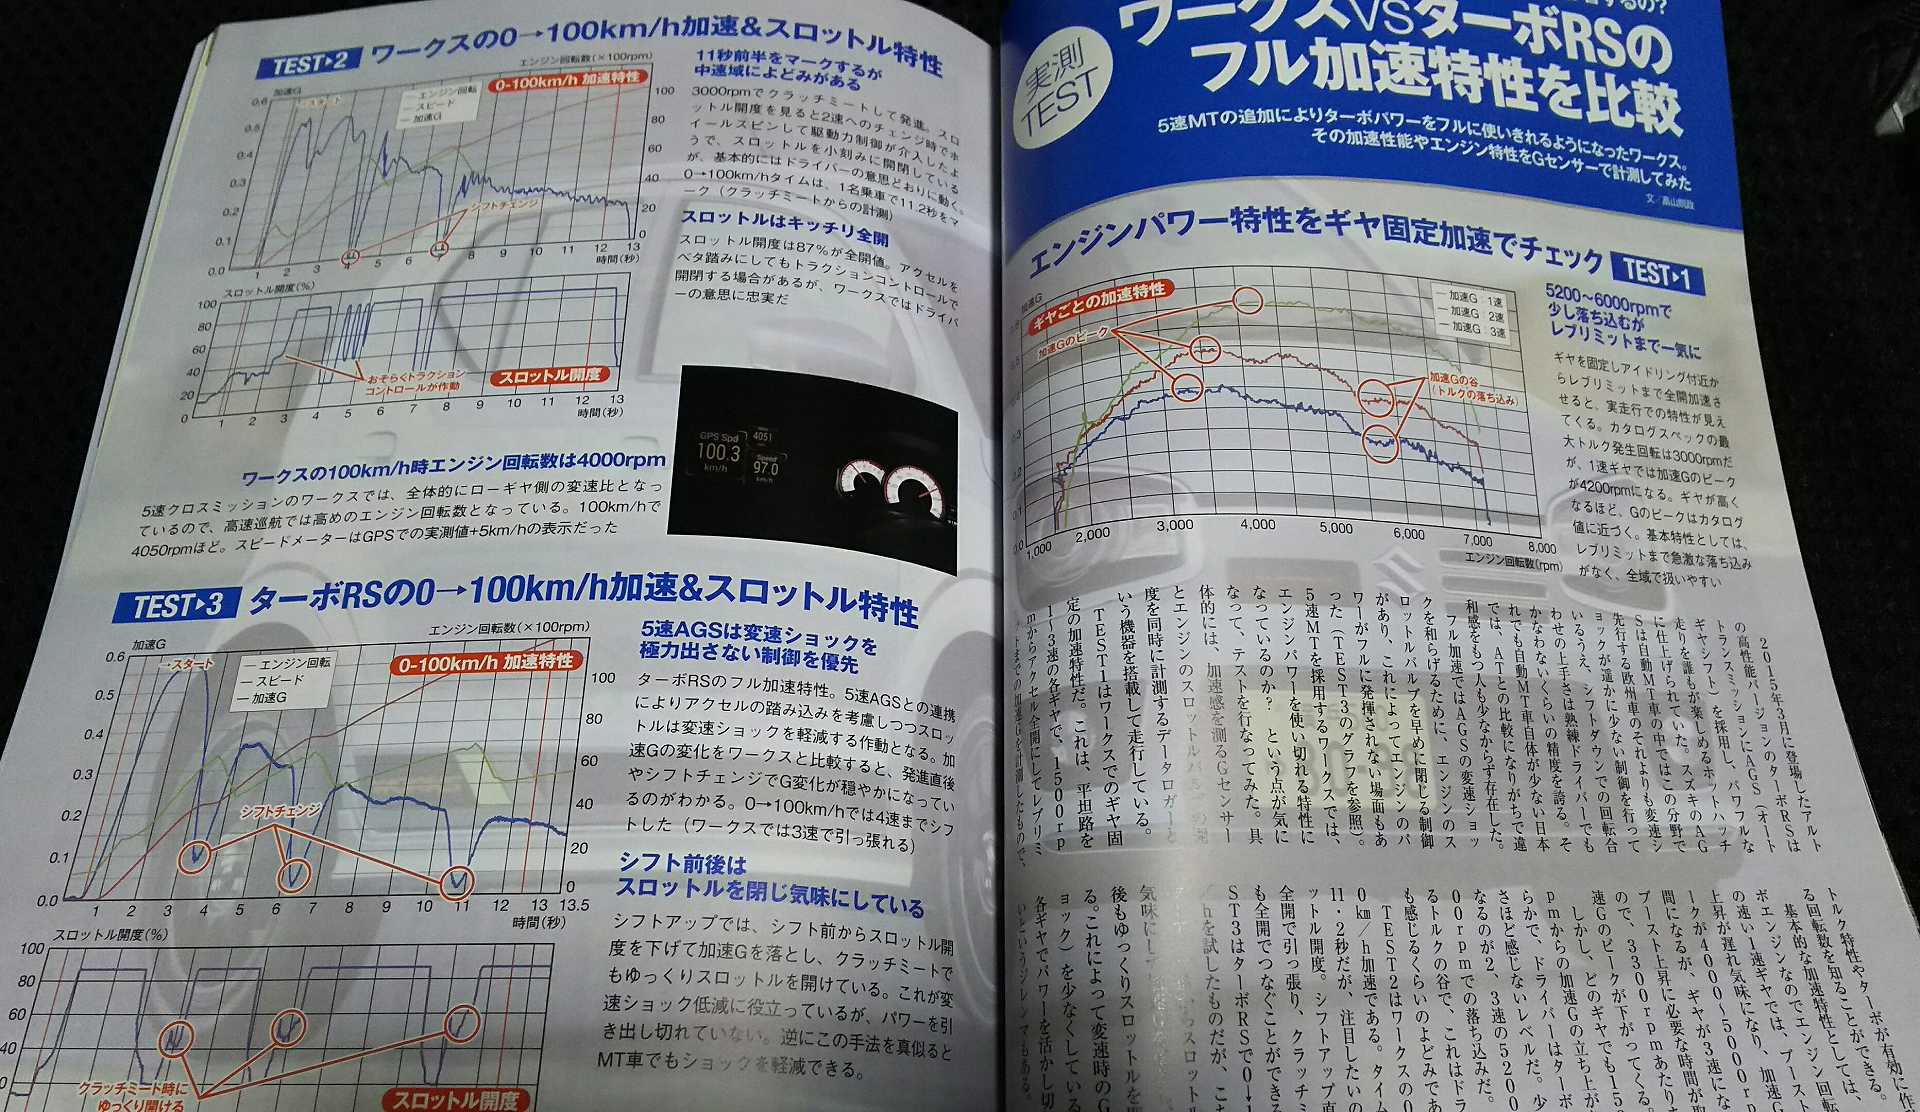 TEST▶2 ワークスの0→100km/h加速&スロットル特性
エンジン回転数(×100rpm)
加速G
0-100km/h 加速特性
→スタート
エンジン回転
スピード
加速G
0.6
0.5
0.4
0.3
0.2
0.1
0.0
100
80
60
40
20
0
シフトチェンジ
1 2 3 4 5 6 7 8 9 10 11 12 13
時間(秒)
スロットル開度(%)
100
80
60
40
20
0
おそらくトラクション
コントロールが作動
スロットル開度
1 2 3 4 5 6 7 8 9 10 11 12 13
時間(秒)
11秒前半をマークするが
中速域によどみがある
3000rpmでクラッチミートして発進。スロ
ットル開度を見ると2速へのチェンジ時でホ
イールスピンして駆動力制御が介入したよ
うで、スロットルを小刻みに開閉している
が、基本的にはドライバーの意思どおりに動く。
0→100km/hタイムは、1名乗車で11.2秒をマ
ーク(クラッチミートからの計測)
スロットルはキッチリ全開
スロットル開度は87%が全開値。アクセルを
ベタ踏みにしてもトラクションコントロールで
開閉する場合があるが、ワークスではドライバ
ーの意思に忠実だ
GPS Spd
100.3
km/h
4051
Speed
97.0
km/h
ワークスの100km/h時エンジン回転数は4000rpm
5速クロスミッションのワークスでは、全体的にローギヤ側の変速比となっ
ているので、高速巡航では高めのエンジン回転数となっている。100km/hで
4050rpmほど。スピードメーターはGPSでの実測値+5km/hの表示だった
TEST▶3 ターボRSの0→100km/h加速&スロットル特性
エンジン回転数(×100rpm)
加速G
0-100km/h 加速特性
→スタート
エンジン回転
スピード
加速G
0.6
0.5
0.4
0.3
0.2
0.1
0.0
100
80
60
40
20
0
シフトチェンジ
1 2 3 4 5 6 7 8 9 10 11 12 13 13.5
時間(秒)
スロットル開度(%)
100
80
60
40
クラッチミート時に
ゆっくり開ける
スロットル開度
5速AGSは変速ショックを
極力出さない制御を優先
ターボRSのフル加速特性。5速AGSとの連携
によりアクセルの踏み込みを考慮しつつスロッ
トルは変速ショックを軽減する作動となる。加
速Gの変化をワークスと比較すると、発進直後
やシフトチェンジでG変化が穏やかになってい
るのがわかる。0→100km/hでは4速までシフ
トした(ワークスでは3速で引っ張れる)
シフト前後は
スロットルを閉じ気味にしている
シフトアップでは、シフト前からスロットル開
度を下げて加速Gを落とし、クラッチミートで
もゆっくりスロットルを開けている。これが変
速ショック低減に役立っているが、パワーを引
き出し切れていない。逆にこの手法を真似ると
MT車でもショックを軽減できる。
するの?
実測
TEST
ワークスVSターボRSの
フル加速特性を比較
5速MTの追加によりターボパワーをフルに使いきれるようになったワークス。
その加速性能やエンジン特性をGセンサーで計測してみた
エンジンパワー特性をギヤ固定加速でチェック TEST▶1
加速G
ギヤごとの加速特性
加速Gのピーク
加速G:1速
加速G:2速
加速G:3速
加速Gの谷
(トルクの落ち込み)
1,000 2,000 3,000 4,000 5,000 6,000 7,000 8,000
エンジン回転数(rpm)
5200〜6000rpmで
少し落ち込むが
レブリミットまで一気に
ギヤを固定しアイドリング付近か
らレブリミットまで全開加速さ
せると、実走行での特性が見え
てくる。カタログスペックの最
大トルク発生回転は3000rpmだ
が、1速ギヤでは加速Gのピーク
が4200rpmになる。ギヤが高く
なるほど、Gのピークはカタログ
値に近づく。基本特性としては、
レブリミットまで急激な落ち込み
がなく、全域で扱いやすい
2015年3月に登場したアルト
の高性能バージョンのターボRSは
トランスミッションにAGS(オート
ギヤシフト)を採用し、パワフルな
走りを誰もが楽しめるホットハッチ
に仕上げられていた。スズキのAG
Sは自動MT車の中ではこの分野で
先行する欧州車のそれよりも変速シ
ョックが遥かに少ない制御を行って
いるうえ、シフトダウンでの回転合
わせの上手さは熟練ドライバーでも
かなわないくらいの精度を誇る。そ
れでも自動MT車自体が少ない日本
では、ATとの比較になりがちで違
和感をもつ人も少なからず存在した。
フル加速ではAGSの変速ショッ
クを和らげるために、エンジンのス
ロットルバルブを早めに閉じる制御
があり、これによってエンジンのパ
ワーがフルに発揮されない場面もあ
った(TEST3のグラフを参照)。
5速MTを採用するワークスでは、
エンジンパワーを使い切れる特性に
なっているのか? という点が気に
なって、テストを行なってみた。具
体的には、加速感を測るGセンサー
とエンジンのスロットルバルブ開
度を同時に計測するデータロガーと
いう機器を搭載して走行している。
TEST1はワークスでのギヤ固
定の加速特性だ。これは、平坦路を
1〜3速の各ギヤで、1500rp
mからアクセル全開にしてレブリミ
トルク特性やターボが有効に作
る回転数を知ることができる。
基本的な加速特性としては、
ボエンジンなのでエンジン回転
の速い1速ギヤでは、ブースト
上昇が遅れ気味になり、加速
ークが4000〜5000rp
間になるが、ギヤが3速にな
ブースト上昇に必要な時間が
ので、3300rpmあたり
速Gのピークが下がってくる。
しかし、どのギヤでも15
pmからの加速Gの立ち上が
らかで、ドライバーはターボ
さほど感じないレベルだ。少
なるのが2、3速の5200
00rpmでの落ち込みだ。
るトルクの谷で、これはドラ
も感じるくらいのよどみであ
TEST2はワークスの0
0km/h加速である。タイム
11・2秒だが、注目したいの
ットル開度。シフトアップ直
全開で引っ張り、クラッチミ
も全開でつなぐことができ
ST3はターボRSで0→1